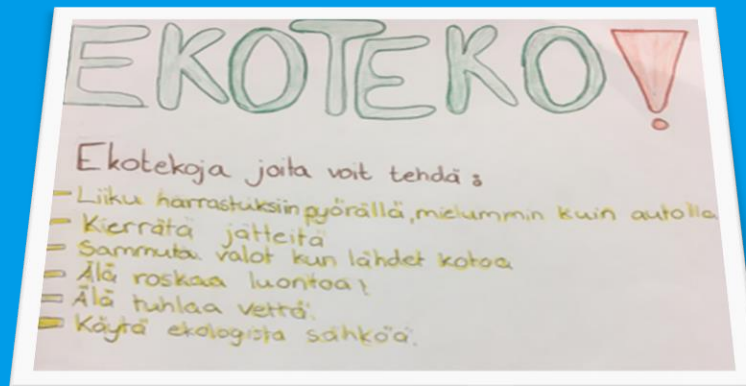 EKOTEKO!
Ekotekoja joita voit tehdä:
- Liiku harrastuksiin pyörällä, mielummin kuin autolla
- Kierrätä jätteitä
- Sammuta valot kun lähdet kotoa
- Älä roskaa luontoa!
- Älä tuhlaa vettä.
- Käytä ekologista sähköä.